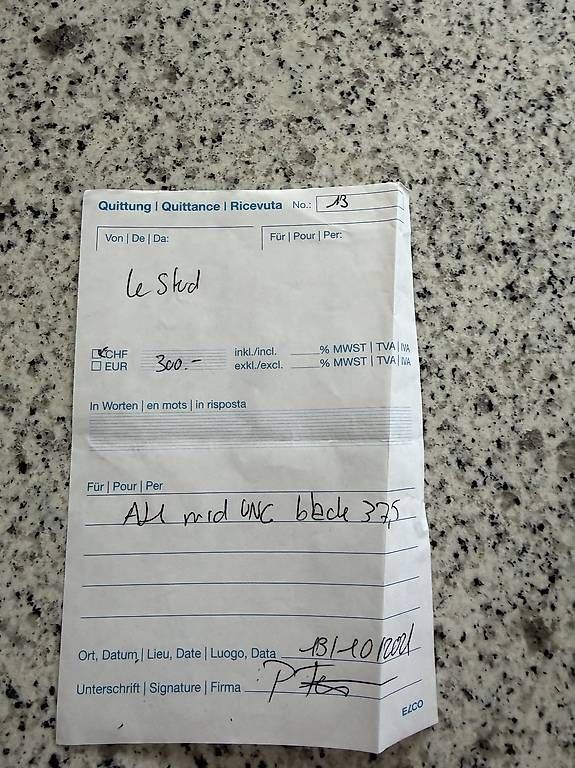 Quittung | Quittance | Ricevuta No.: 13
Von | De | Da: Für | Pour | Per:
Le Stud
CHF 300.- inkl./incl. % MWST | TVA | IVA
EUR exkl./excl. % MWST | TVA | IVA
In Worten | en mots | in risposta
Für | Pour | Per
mid UNC black 37,5
Ort, Datum | Lieu, Date | Luogo, Data 13/10/2021
Unterschrift | Signature | Firma
ELCO